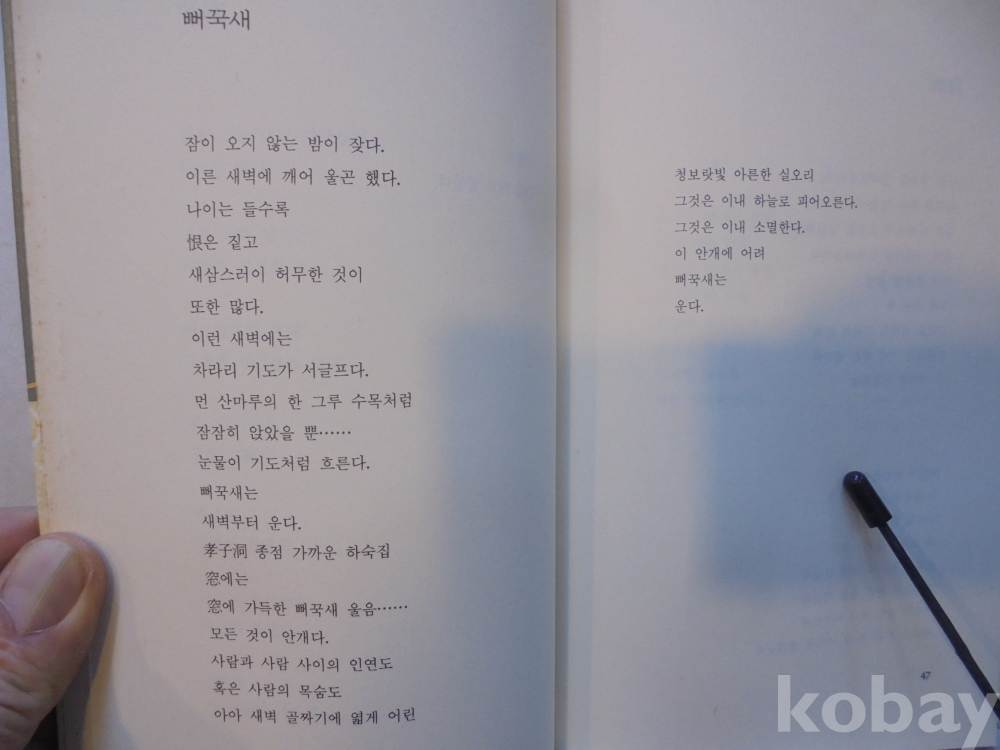 뻐꾹새
잠이 오지 않는 밤이 잦다.
이른 새벽에 깨어 울곤 했다.
나이는 들수록
恨은 짙고
새삼스러이 허무한 것이
또한 많다.
이런 새벽에는
차라리 기도가 서글프다.
먼 산마루의 한 그루 수목처럼
잠잠히 앉았을 뿐……
눈물이 기도처럼 흐른다.
뻐꾹새는
새벽부터 운다.
孝子洞 종점 가까운 하숙집
窓에는
窓에 가득한 뻐꾹새 울음……
모든 것이 안개다.
사람과 사람 사이의 인연도
혹은 사람의 목숨도
아아 새벽 골짜기에 엷게 어린
청보랏빛 아른한 실오리
그것은 이내 하늘로 피어오른다.
그것은 이내 소멸한다.
이 안개에 어려
뻐꾹새는
운다.
47
kobay